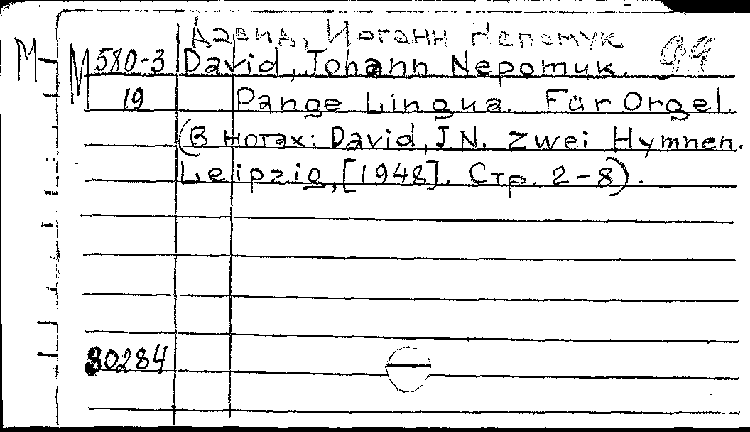 Давид, Иоганн Непомук
М М 580-3 David, Johann Nepomuk. 99
19 Pange Lingua. Für Orgel.
(В нотах: David, J N. Zwei Hymnen.
Leipzig, [1948]. Стр. 2-8).
80284